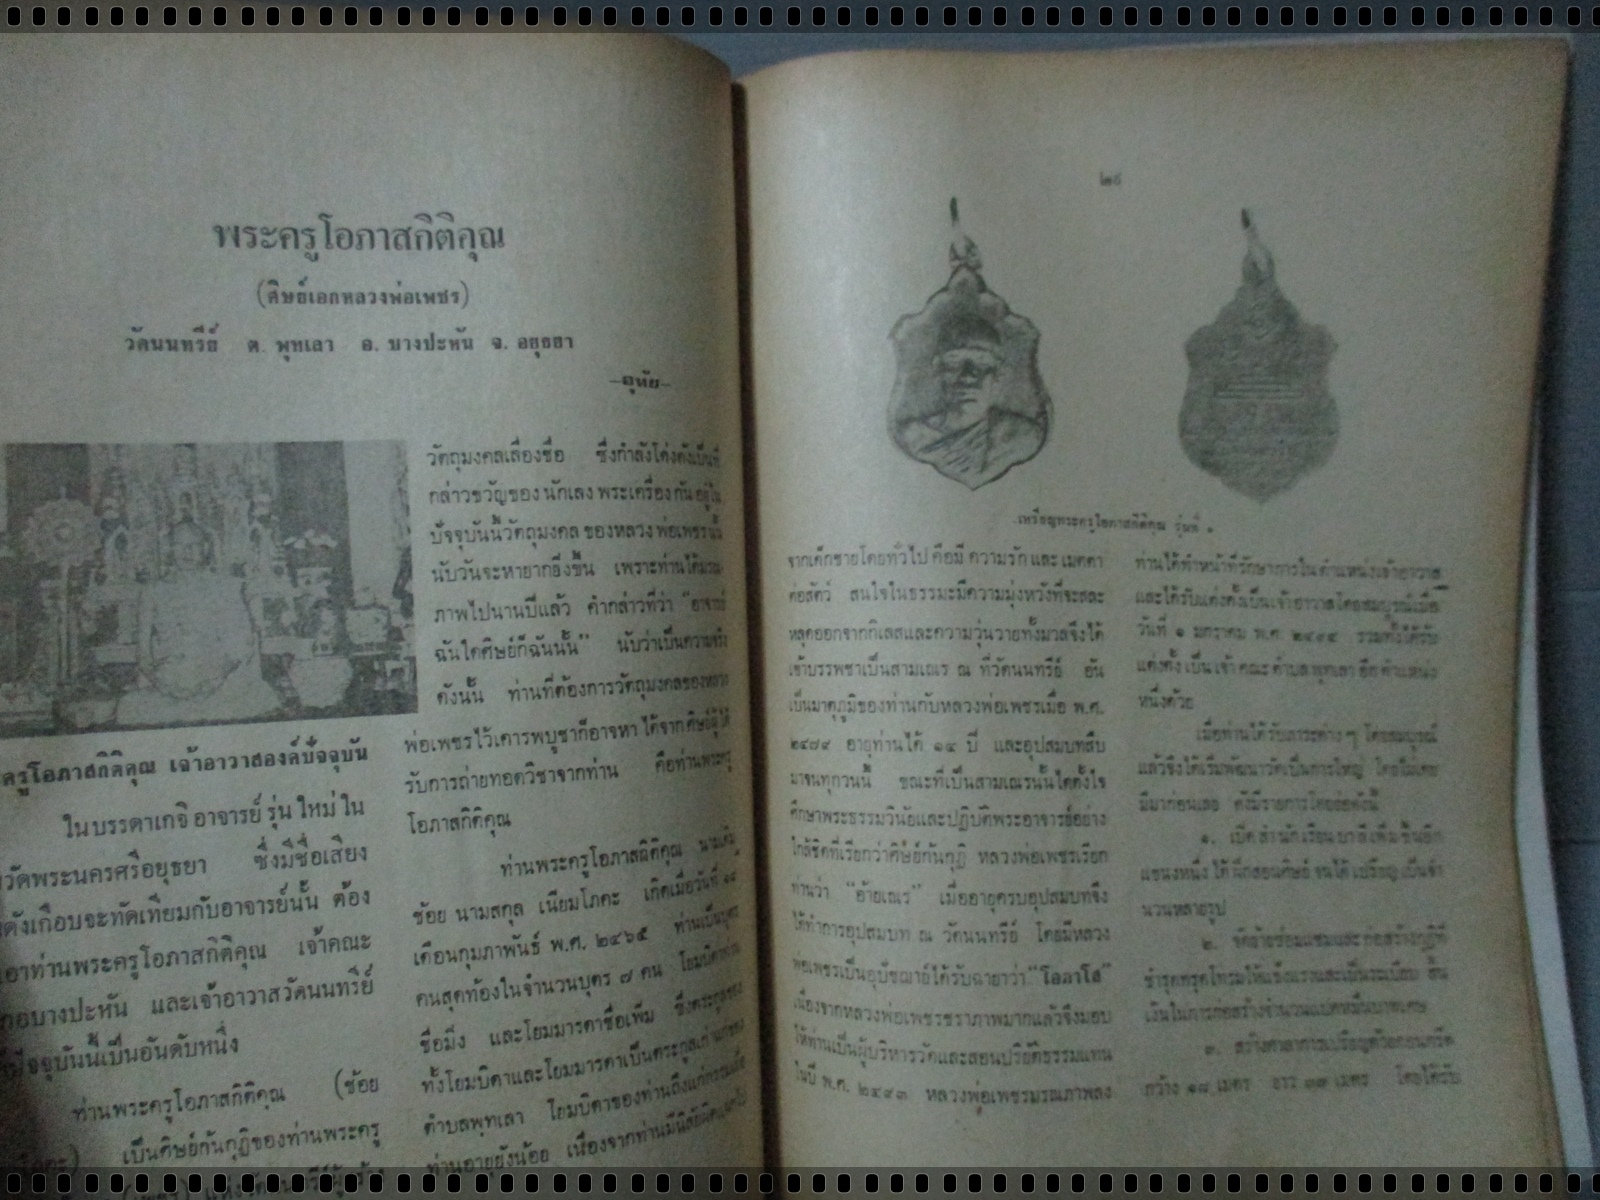 พระครูโอภาสกิติคุณ
(ศิษย์เอกหลวงพ่อเพชร)
วัดนนทรีย์ ต. พุทเลา อ. บางปะหัน จ. อยุธยา
–อุทัย–
ครูโอภาสกิติคุณ เจ้าอาวาสองค์ปัจจุบัน
ในบรรดาเกจิอาจารย์รุ่นใหม่ใน
วัดพระนครศรีอยุธยา ซึ่งมีชื่อเสียง
ดังเกือบจะทัดเทียมกับอาจารย์นั้น ต้อง
เอาท่านพระครูโอภาสกิติคุณ เจ้าคณะ
บางปะหัน และเจ้าอาวาสวัดนนทรีย์
ปัจจุบันนี้เป็นอันดับหนึ่ง
ท่านพระครูโอภาสกิติคุณ (ช้อย
เป็นศิษย์ก้นกุฏิของท่านพระครู
วัตถุมงคลเลื่องชื่อ ซึ่งกำลังโด่งดังเป็นที่
กล่าวขวัญของนักเลงพระเครื่องกันอยู่ใน
ปัจจุบันนี้วัตถุมงคลของหลวงพ่อเพชรนั้น
นับวันจะหายากยิ่งขึ้น เพราะท่านได้มรณ
ภาพไปนานปีแล้ว คำกล่าวที่ว่า "อาจารย์
ฉันใดศิษย์ก็ฉันนั้น" นับว่าเป็นความจริง
ดังนั้น ท่านที่ต้องการวัตถุมงคลของหลวง
พ่อเพชรไว้เคารพบูชาก็อาจหาได้จากศิษย์ผู้ได้
รับการถ่ายทอดวิชาจากท่าน คือท่านพระครู
โอภาสกิติคุณ
ท่านพระครูโอภาสกิติคุณ นามเดิม
ช้อย นามสกุล เนียมโภคะ เกิดเมื่อวันที่ ๑๘
เดือนกุมภาพันธ์ พ.ศ. ๒๔๖๕ ท่านเป็นบุตร
คนสุดท้องในจำนวนบุตร ๗ คน โยมบิดาท่าน
ชื่อมิ่ง และโยมมารดาชื่อเพิ่ม ซึ่งตระกูลของ
ทั้งโยมบิดาและโยมมารดาเป็นตระกูลเก่าแก่ของ
ตำบลพุทเลา โยมบิดาของท่านถึงแก่กรรมเมื่อ
ท่านอายุยังน้อย เนื่องจากท่านมีนิสัยผิดแผกไป
เหรียญพระครูโอภาสกิติคุณ รุ่นที่ ๑
จากเด็กชายโดยทั่วไป คือมีความรักและเมตตา
ต่อสัตว์ สนใจในธรรมะมีความมุ่งหวังที่จะสละ
หลุดออกจากกิเลสและความวุ่นวายทั้งมวลจึงได้
เข้าบรรพชาเป็นสามเณร ณ ที่วัดนนทรีย์ อัน
เป็นมาตุภูมิของท่านกับหลวงพ่อเพชรเมื่อ พ.ศ.
๒๔๗๙ อายุท่านได้ ๑๔ ปี และอุปสมบทสืบ
มาจนทุกวันนี้ ขณะที่เป็นสามเณรนั้นได้ตั้งใจ
ศึกษาพระธรรมวินัยและปฏิบัติพระอาจารย์อย่าง
ใกล้ชิดที่เรียกว่าศิษย์ก้นกุฏิ หลวงพ่อเพชรเรียก
ท่านว่า "อ้ายเณร" เมื่ออายุครบอุปสมบทจึง
ได้ทำการอุปสมบท ณ วัดนนทรีย์ โดยมีหลวง
พ่อเพชรเป็นอุปัชฌาย์ได้รับฉายาว่า "โอภาโส"
เนื่องจากหลวงพ่อเพชรชราภาพมากแล้วจึงมอบ
ให้ท่านเป็นผู้บริหารวัดและสอนปริยัติธรรมแทน
ในปี พ.ศ. ๒๔๙๓ หลวงพ่อเพชรมรณภาพลง
ท่านได้ทำหน้าที่รักษาการในตำแหน่งเจ้าอาวาส
และได้รับแต่งตั้งเป็นเจ้าอาวาสโดยสมบูรณ์เมื่อ
วันที่ ๑ มกราคม พ.ศ. ๒๔๙๔ รวมทั้งได้รับ
แต่งตั้งเป็นเจ้าคณะตำบลพุทเลา อีกตำแหน่ง
หนึ่งด้วย
เมื่อท่านได้รับภาระต่างๆ โดยสมบูรณ์
แล้วจึงได้เริ่มพัฒนาวัดเป็นการใหญ่ โดยไม่เคย
มีมาก่อนเลย ดังมีรายการโดยย่อดังนี้
๑. เปิดสำนักเรียนบาลีเพิ่มขึ้นอีก
แขนงหนึ่ง ได้ฝึกสอนศิษย์จนได้เปรียญเป็นจำ
นวนหลายรูป
๒. จัดซ่อมแซมและก่อสร้างกุฏิที่
ชำรุดทรุดโทรมให้แข็งแรงและเป็นระเบียบ สิ้น
เงินในการก่อสร้างจำนวนแปดหมื่นบาทเศษ
๓. สร้างศาลาการเปรียญด้วยคอนกรีต
กว้าง ๑๘ เมตร ยาว ๓๓ เมตร โดยได้รับ